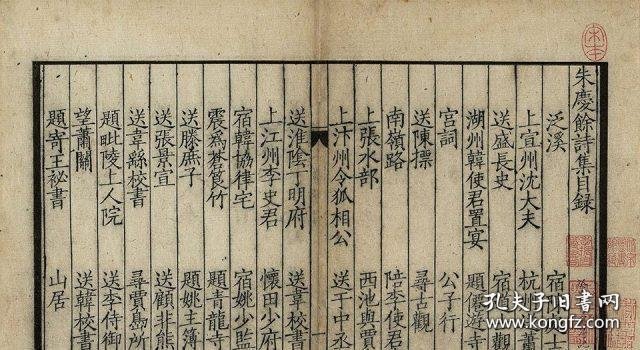 朱慶餘詩集目錄
泛溪
上宣州沈大夫 杭州
送盛長史 宿
湖州韓使君置宴 題僊遊寺
宮詞 公子行
送陳摽 尋古觀
南嶺路 陪李使
上張水部 西池與賈
上汴州令狐相公 送于中丞
送淮陰丁明府 送韋校書
上江州李史君 懷田少府
宿韓協律宅 宿姚少監
震爲蒼筤竹 題青龍寺
送滕庶子 題姚主簿
送張景宣 送顧非熊
送韋繇校書 尋賈島所
題毗陵上人院 送李侍御
望蕭關 送韓校書
題寄王祕書 山居
孔夫子旧书网
www.kongfz.com